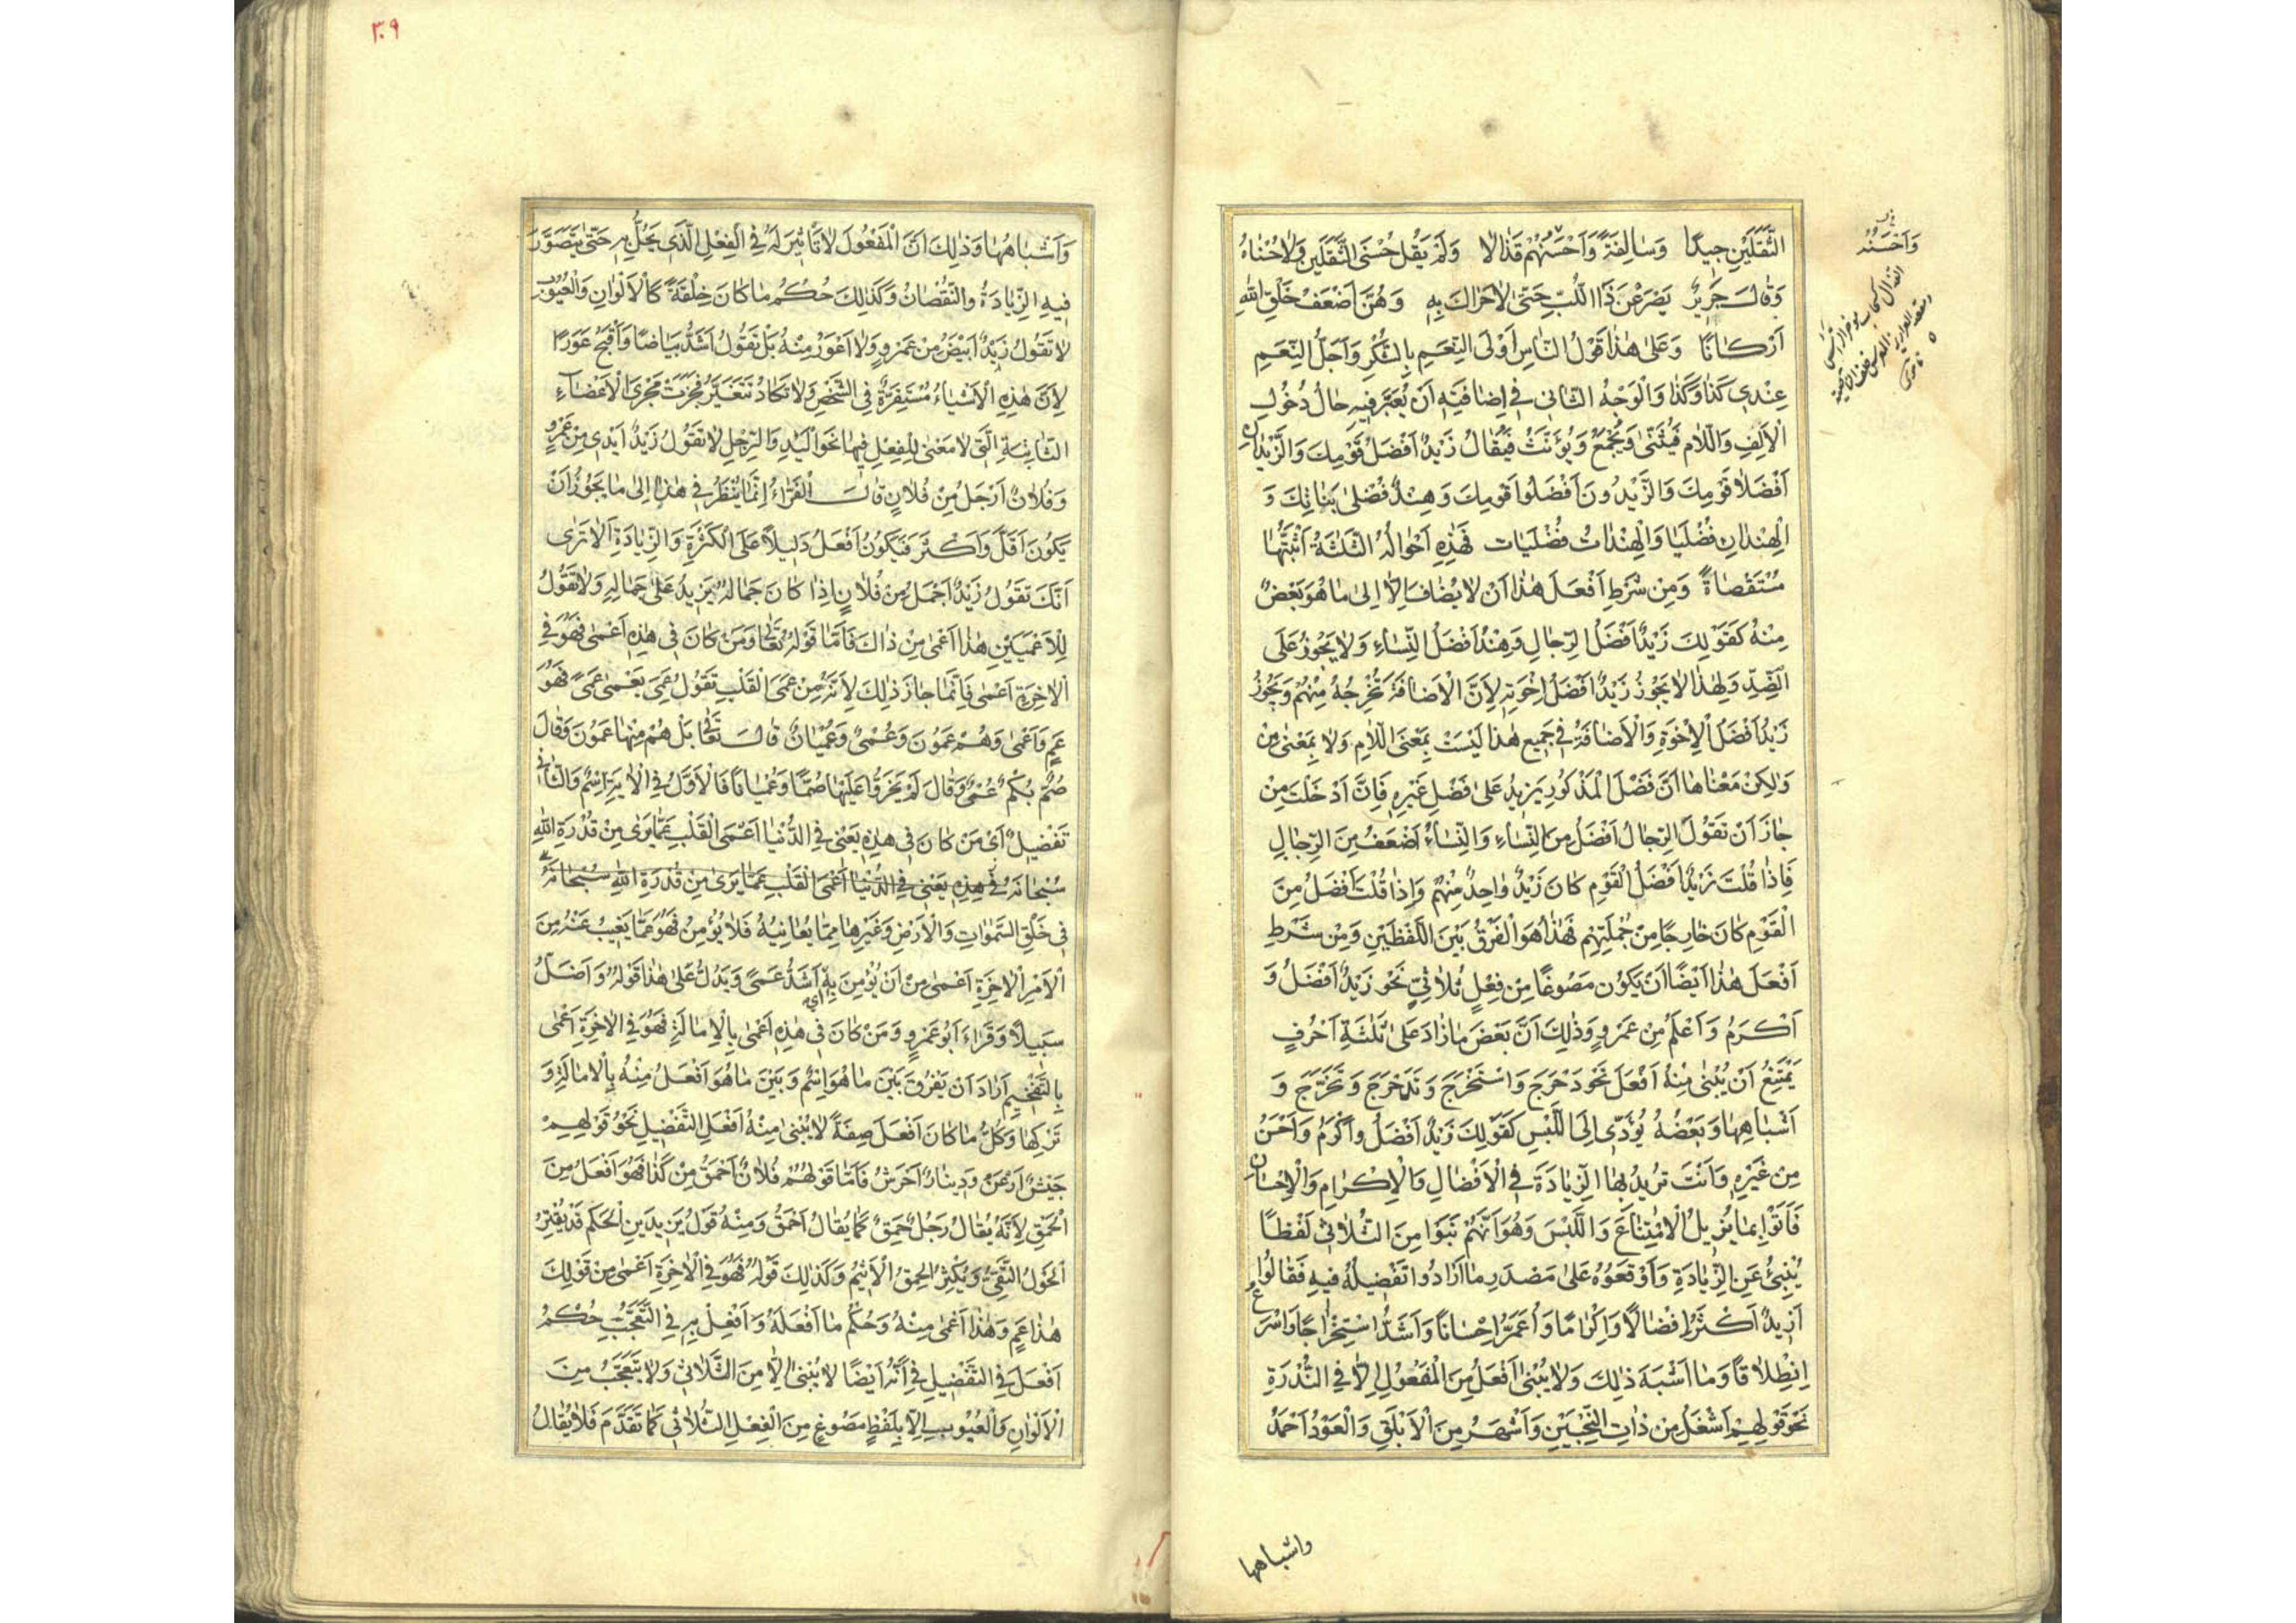 الثَّقَلَيْنِ جِيدًا وَسَالِفَةً وَاَحْسَنُهُمْ قَذَالًا وَلَمْ يَقُلْ حُسْنَى الثَّقَلَيْنِ وَلَا حُسْنَاهُ
وَقَالَ جَرِيرٌ يَصْرَعْنَ ذَا اللُّبِّ حَتّٰى لَا حَرَاكَ بِهِ وَهُنَّ اَضْعَفُ خَلْقِ اللهِ
اَرْكَانًا وَعَلٰى هٰذَا قَوْلُ النَّاسِ اَوْلَى النِّعَمِ بِالشُّكْرِ وَاَجَلُّ النِّعَمِ
عِنْدِي كَذَا وَكَذَا وَالْوَجْهُ الثَّانِي فِي اِضَافَتِهِ اَنْ يُعْتَبَرَ فِيهِ حَالُ دُخُولِ
الْاَلِفِ وَاللَّامِ فَيُثَنّٰى وَيُجْمَعُ وَيُؤَنَّثُ فَيُقَالُ زَيْدٌ اَفْضَلُ قَوْمِكَ وَالزَّيْدَانِ
اَفْضَلَا قَوْمِكَ وَالزَّيْدُونَ اَفْضَلُوا قَوْمِكَ وَهِنْدٌ فُضْلٰى بَنَاتِكَ وَ
الْهِنْدَانِ فُضْلَيَا وَالْهِنْدَاتُ فُضْلَيَات فَهٰذِهِ اَحْوَالُهُ الثَّلٰثَةُ اَثْبَتُّهَا
مُسْتَقْصَاةً وَمِنْ شَرْطِ اَفْعَلَ هٰذَا اَنْ لَا يُضَافَ اِلَّا اِلٰى مَا هُوَ بَعْضٌ
مِنْهُ كَقَوْلِكَ زَيْدٌ اَفْضَلُ الرِّجَالِ وَهِنْدٌ اَفْضَلُ النِّسَاءِ وَلَا يَجُوزُ عَلَى
الضِّدِّ وَلِهٰذَا لَا يَجُوزُ زَيْدٌ اَفْضَلُ اِخْوَتِهِ لِاَنَّ الْاِضَافَةَ تُخْرِجُهُ مِنْهُمْ وَيَجُوزُ
زَيْدٌ اَفْضَلُ الْاِخْوَةِ وَالْاِضَافَةُ فِي جَمِيعِ هٰذَا لَيْسَتْ بِمَعْنَى اللَّامِ وَلَا بِمَعْنٰى مِنْ
وَلٰكِنْ مَعْنَاهَا اَنَّ فَضْلَ الْمَذْكُورِ يَزِيدُ عَلٰى فَضْلِ غَيْرِهِ فَاِنْ اَدْخَلْتَ مِنْ
جَازَ اَنْ تَقُولَ الرِّجَالُ اَفْضَلُ مِنَ النِّسَاءِ وَالنِّسَاءُ اَضْعَفُ مِنَ الرِّجَالِ
فَاِذَا قُلْتَ زَيْدٌ اَفْضَلُ الْقَوْمِ كَانَ زَيْدٌ وَاحِدٌ مِنْهُمْ وَاِذَا قُلْتَ اَفْضَلُ مِنَ
الْقَوْمِ كَانَ خَارِجًا مِنْ جُمْلَتِهِمْ فَهٰذَا هُوَ الْفَرْقُ بَيْنَ اللَّفْظَيْنِ وَمِنْ شَرْطِ
اَفْعَلَ هٰذَا اَيْضًا اَنْ يَكُونَ مَصُوغًا مِنْ فِعْلٍ ثُلَاثِيٍّ نَحْو زَيْدٌ اَفْضَلُ وَ
اَكْرَمُ وَاَعْلَمُ مِنْ عَمْرٍو وَذٰلِكَ اَنَّ بَعْضَ مَا زَادَ عَلٰى ثَلٰثَةِ اَحْرُفٍ
يَمْتَنِعُ اَنْ يُبْنٰى مِنْهُ اَفْعَلُ نَحْو دَحْرَجَ وَاسْتَخْرَجَ وَتَدَحْرَجَ وَتَخَرَّجَ وَ
اَشْبَاهِهَا وَبَعْضُهُ يُؤَدِّي اِلَى اللَّبْسِ كَقَوْلِكَ زَيْدٌ اَفْضَلُ وَاَكْرَمُ وَاَحْسَنُ
مِنْ غَيْرِهِ وَاَنْتَ تُرِيدُ بِهَا الزِّيَادَةَ فِي الْاِفْضَالِ وَالْاِكْرَامِ وَالْاِحْسَانِ
فَاَتَوْا بِمَا يُزِيلُ الْاِمْتِنَاعَ وَاللَّبْسَ وَهُوَ اَنَّهُمْ بَنَوْا مِنَ الثُّلَاثِي لَفْظًا
يُنْبِئُ عَنِ الزِّيَادَةِ وَاَوْقَعُوهُ عَلٰى مَصْدَرِ مَا اَرَادُوا تَفْضِيلَهُ فِيهِ فَقَالُوا
اَزِيدٌ اَكْثَرُ اِفْضَالًا وَاِكْرَامًا وَاَعَمُّ اِحْسَانًا وَاَشَدُّ اسْتِخْرَاجًا وَاَسْرَعُ
اِنْطِلَاقًا وَمَا اَشْبَهَ ذٰلِكَ وَلَا يُبْنٰى اَفْعَلُ مِنَ الْمَفْعُولِ اِلَّا فِي النُّدْرَةِ
نَحْوَ قَوْلِهِمْ اَشْغَلُ مِنْ ذَاتِ النِّحْيَيْنِ وَاَشْهَرُ مِنَ الْاَبْلَقِ وَالْعَوْدُ اَحْمَدُ
واشباهها
وَاَحْسَنُهُ
٣٠٩
وَاَشْبَاهُهَا وَذٰلِكَ اَنَّ الْمَفْعُولَ لَا تَاْثِيرَ لَهُ فِي الْفِعْلِ الَّذِي يَحُلُّ بِهِ حَتّٰى يَتَصَوَّرَ
فِيهِ الزِّيَادَةُ وَالنُّقْصَانُ وَكَذٰلِكَ حُكْمُ مَا كَانَ خِلْقَةً كَالْاَلْوَانِ وَالْعُيُوبِ
لَا تَقُولُ زَيْدٌ اَبْيَضُ مِنْ عَمْرٍو وَلَا اَعْوَرُ مِنْهُ بَلْ تَقُولُ اَشَدُّ بَيَاضًا وَاَقْبَحُ عَوَرًا
لِاَنَّ هٰذِهِ الْاَشْيَاءَ مُسْتَقِرَّةٌ فِي الشَّخْصِ وَلَا تَكَادُ تَتَغَيَّرُ فَجَرَتْ مَجْرَى الْاَعْضَاءِ
الثَّابِتَةِ الَّتِي لَا مَعْنٰى لِلْفِعْلِ فِيهَا نَحْو الْيَدِ وَالرِّجْلِ لَا تَقُولُ زَيْدٌ اَيْدٰى مِنْ عَمْرٍو
وَفُلَانٌ اَرْجَلُ مِنْ فُلَانٍ قَالَ الْفَرَّاءُ اِنَّمَا يُنْظَرُ فِي هٰذَا اِلٰى مَا يَجُوزُ اَنْ
يَكُونَ اَقَلَّ وَاَكْثَرَ فَيَكُونُ اَفْعَلُ دَلِيلًا عَلَى الْكَثْرَةِ وَالزِّيَادَةِ اَلَا تَرٰى
اَنَّكَ تَقُولُ زَيْدٌ اَجْمَلُ مِنْ فُلَانٍ اِذَا كَانَ جَمَالُهُ يَزِيدُ عَلٰى جَمَالِهِ وَلَا تَقُولُ
لِلْاَعْمَيَيْنِ هٰذَا اَعْمٰى مِنْ ذَاكَ فَاَمَّا قَوْلُهُ تَعَالٰى وَمَنْ كَانَ فِي هٰذِهِ اَعْمٰى فَهُوَ فِي
الْاٰخِرَةِ اَعْمٰى فَاِنَّمَا جَازَ ذٰلِكَ لِاَنَّهُ مِنْ عَمَى الْقَلْبِ تَقُولُ عَمِيَ يَعْمٰى عَمًى فَهُوَ
عَمٍ وَاَعْمٰى وَهُمْ عَمُونَ وَعُمْيٌ وَعُمْيَانٌ قَالَ تَعَالٰى بَلْ هُمْ مِنْهَا عَمُونَ وَقَالَ
صُمٌّ بُكْمٌ عُمْيٌ وَقَالَ لَمْ يَخِرُّوا عَلَيْهَا صُمًّا وَعُمْيَانًا فَالْاَوَّلُ فِي الْاٰيَةِ اِسْمٌ وَالثَّانِي
تَفْضِيلٌ اَيْ مَنْ كَانَ فِي هٰذِهِ يَعْنِي فِي الدُّنْيَا اَعْمَى الْقَلْبِ عَمَّا يَرٰى مِنْ قُدْرَةِ اللهِ
سُبْحَانَهُ فِي هٰذِهِ يَعْنِي فِي الدُّنْيَا اَعْمَى الْقَلْبِ عَمَّا يَرٰى مِنْ قُدْرَةِ اللهِ سُبْحَانَهُ
فِي خَلْقِ السَّمٰوَاتِ وَالْاَرْضِ وَغَيْرِهَا مِمَّا يُعَايِنُهُ فَلَا يُؤْمِنُ فَهُوَ عَمَّا يَغِيبُ عَنْهُ مِنَ
الْاَمْرِ الْاٰخِرَةِ اَعْمٰى مِنْ اَنْ يُؤْمِنَ بِهِ اي اَشَدُّ عَمًى وَيَدُلُّ عَلٰى هٰذَا قَوْلُهُ وَاَضَلُّ
سَبِيلًا وَقَرَاءَ اَبُو عَمْرٍو وَمَنْ كَانَ فِي هٰذِهِ اَعْمٰى بِالْاِمَالَةِ فَهُوَ فِي الْاٰخِرَةِ اَعْمٰى
بِالتَّفْخِيمِ اَرَادَ اَنْ يَفْرُقَ بَيْنَ مَا هُوَ اِسْمٌ وَبَيْنَ مَا هُوَ اَفْعَلُ مِنْهُ بِالْاِمَالَةِ وَ
تَرْكِهَا وَكُلُّ مَا كَانَ اَفْعَلَ صِفَةً لَا يُبْنٰى مِنْهُ اَفْعَلُ التَّفْضِيلِ نَحْوُ قَوْلِهِمْ
جَيْشٌ اَرْعَنُ وَدِينَارٌ اَحْرَشُ فَاَمَّا قَوْلُهُمْ فُلَانٌ اَحْمَقُ مِنْ كَذَا فَهُوَ اَفْعَلُ مِنَ
الْحَمِقِ لِاَنَّهُ يُقَالُ رَجُلٌ حَمِقٌ كَمَا يُقَالُ اَحْمَقُ وَمِنْهُ قَوْلُ يَزِيدَ بْنِ الْحَكَمِ قَدْ يُقْتِرُ
الْحَوِلُ التَّقِيُّ وَيُكْثِرُ الْحَمِقُ الْاَثِيمُ وَكَذٰلِكَ قَوْلُهُ فَهُوَ فِي الْاٰخِرَةِ اَعْمٰى مِنْ قَوْلِكَ
هٰذَا عَمٍ وَهٰذَا اَعْمٰى مِنْهُ وَحُكْمُ مَا اَفْعَلَهُ وَاَفْعِلْ بِهِ فِي التَّعَجُّبِ حُكْمُ
اَفْعَلَ فِي التَّفْضِيلِ فِي اَنَّهُ اَيْضًا لَا يُبْنٰى اِلَّا مِنَ الثُّلَاثِي وَلَا يُتَعَجَّبُ مِنَ
الْاَلْوَانِ وَالْعُيُوبِ اِلَّا بِلَفْظٍ مَصُوغٍ مِنَ الْفِعْلِ الثُّلَاثِي كَمَا تَقَدَّمَ فَلَا يُقَالُ